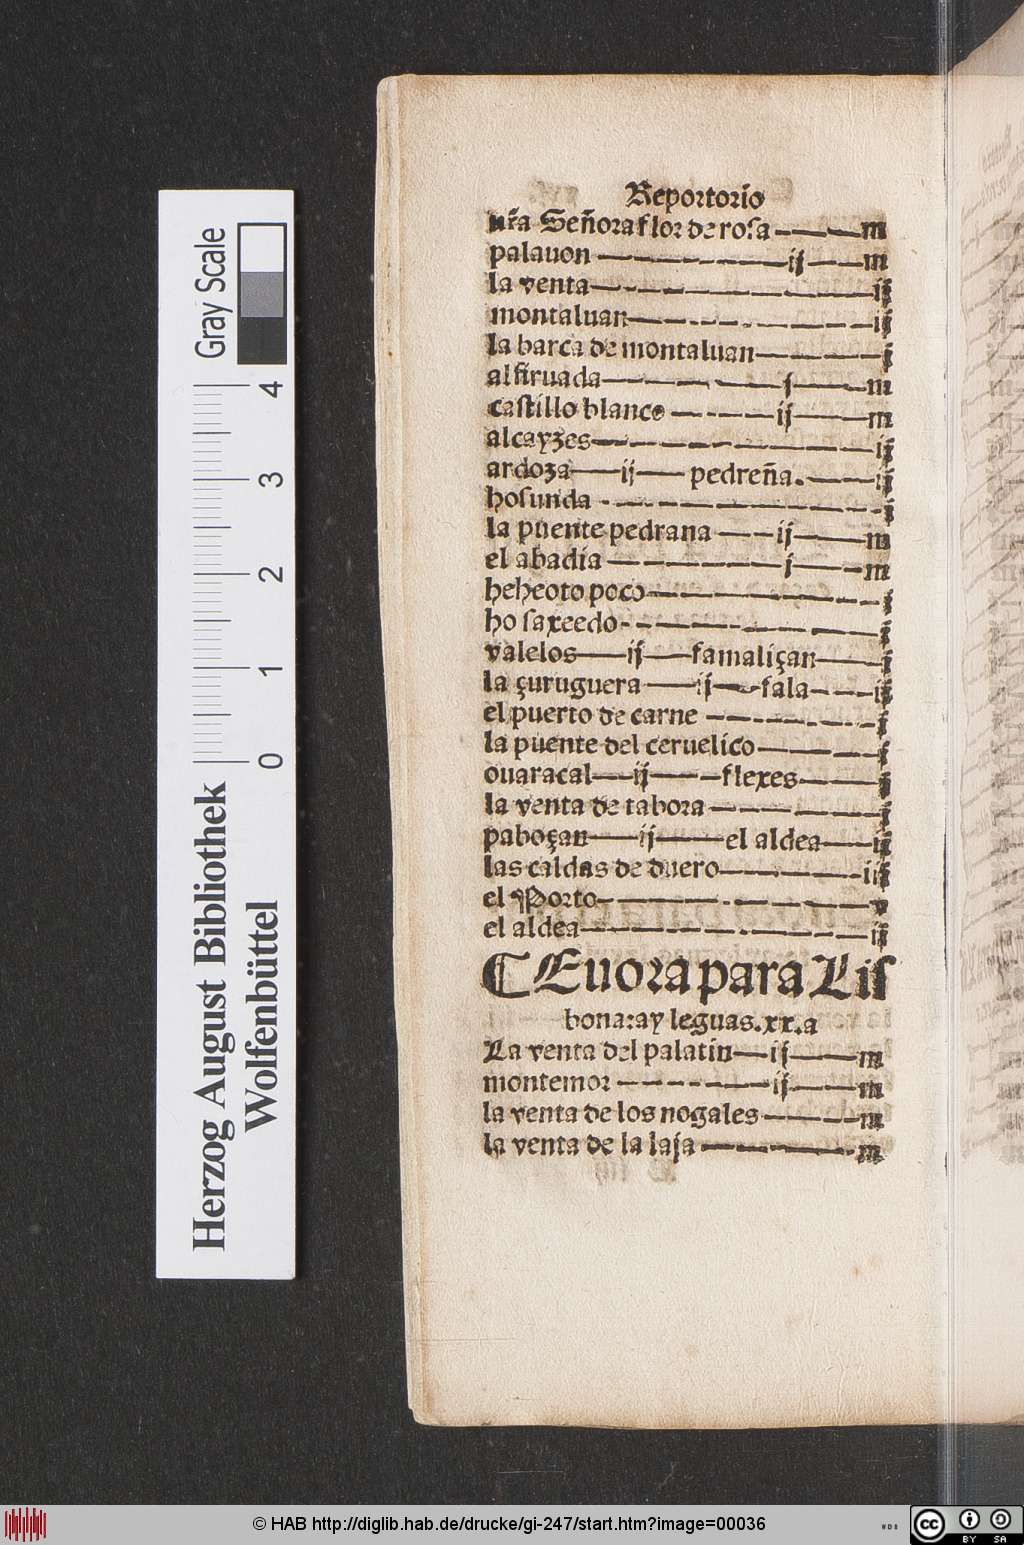 Reportorio
nr̃a Señora flor de rosa — m
palauon — ij — m
la venta — ij
montaluan — ij
la barca de montaluan — j
alfiruada — j — m
castillo blanco — ij — m
alcayzes — ij
ardoza — ij — pedreña. — ij
hosunda — j
la puente pedrana — ij — m
el abadia — j — m
heheoto poco — j
ho saxeedo — j
valelos — ij — famaliçan — j
la çuruguera — ij — fala — ij
el puerto de carne — j
la puente del ceruelico — j
ouaracal — ij — flexes — j
la venta de tabora — j
paboçan — ij — el aldea — ij
las caldas de duero — iij
el Porto — v
el aldea — ij
¶ Euora para Lis
bona: ay leguas. xx. a
La venta del palatin — ij — m
montemor — ij — m
la venta de los nogales — m
la venta de la laja — m
Gray Scale
0 1 2 3 4
Herzog August Bibliothek
Wolfenbüttel
© HAB http://diglib.hab.de/drucke/gi-247/start.htm?image=00036
WDB
cc BY SA